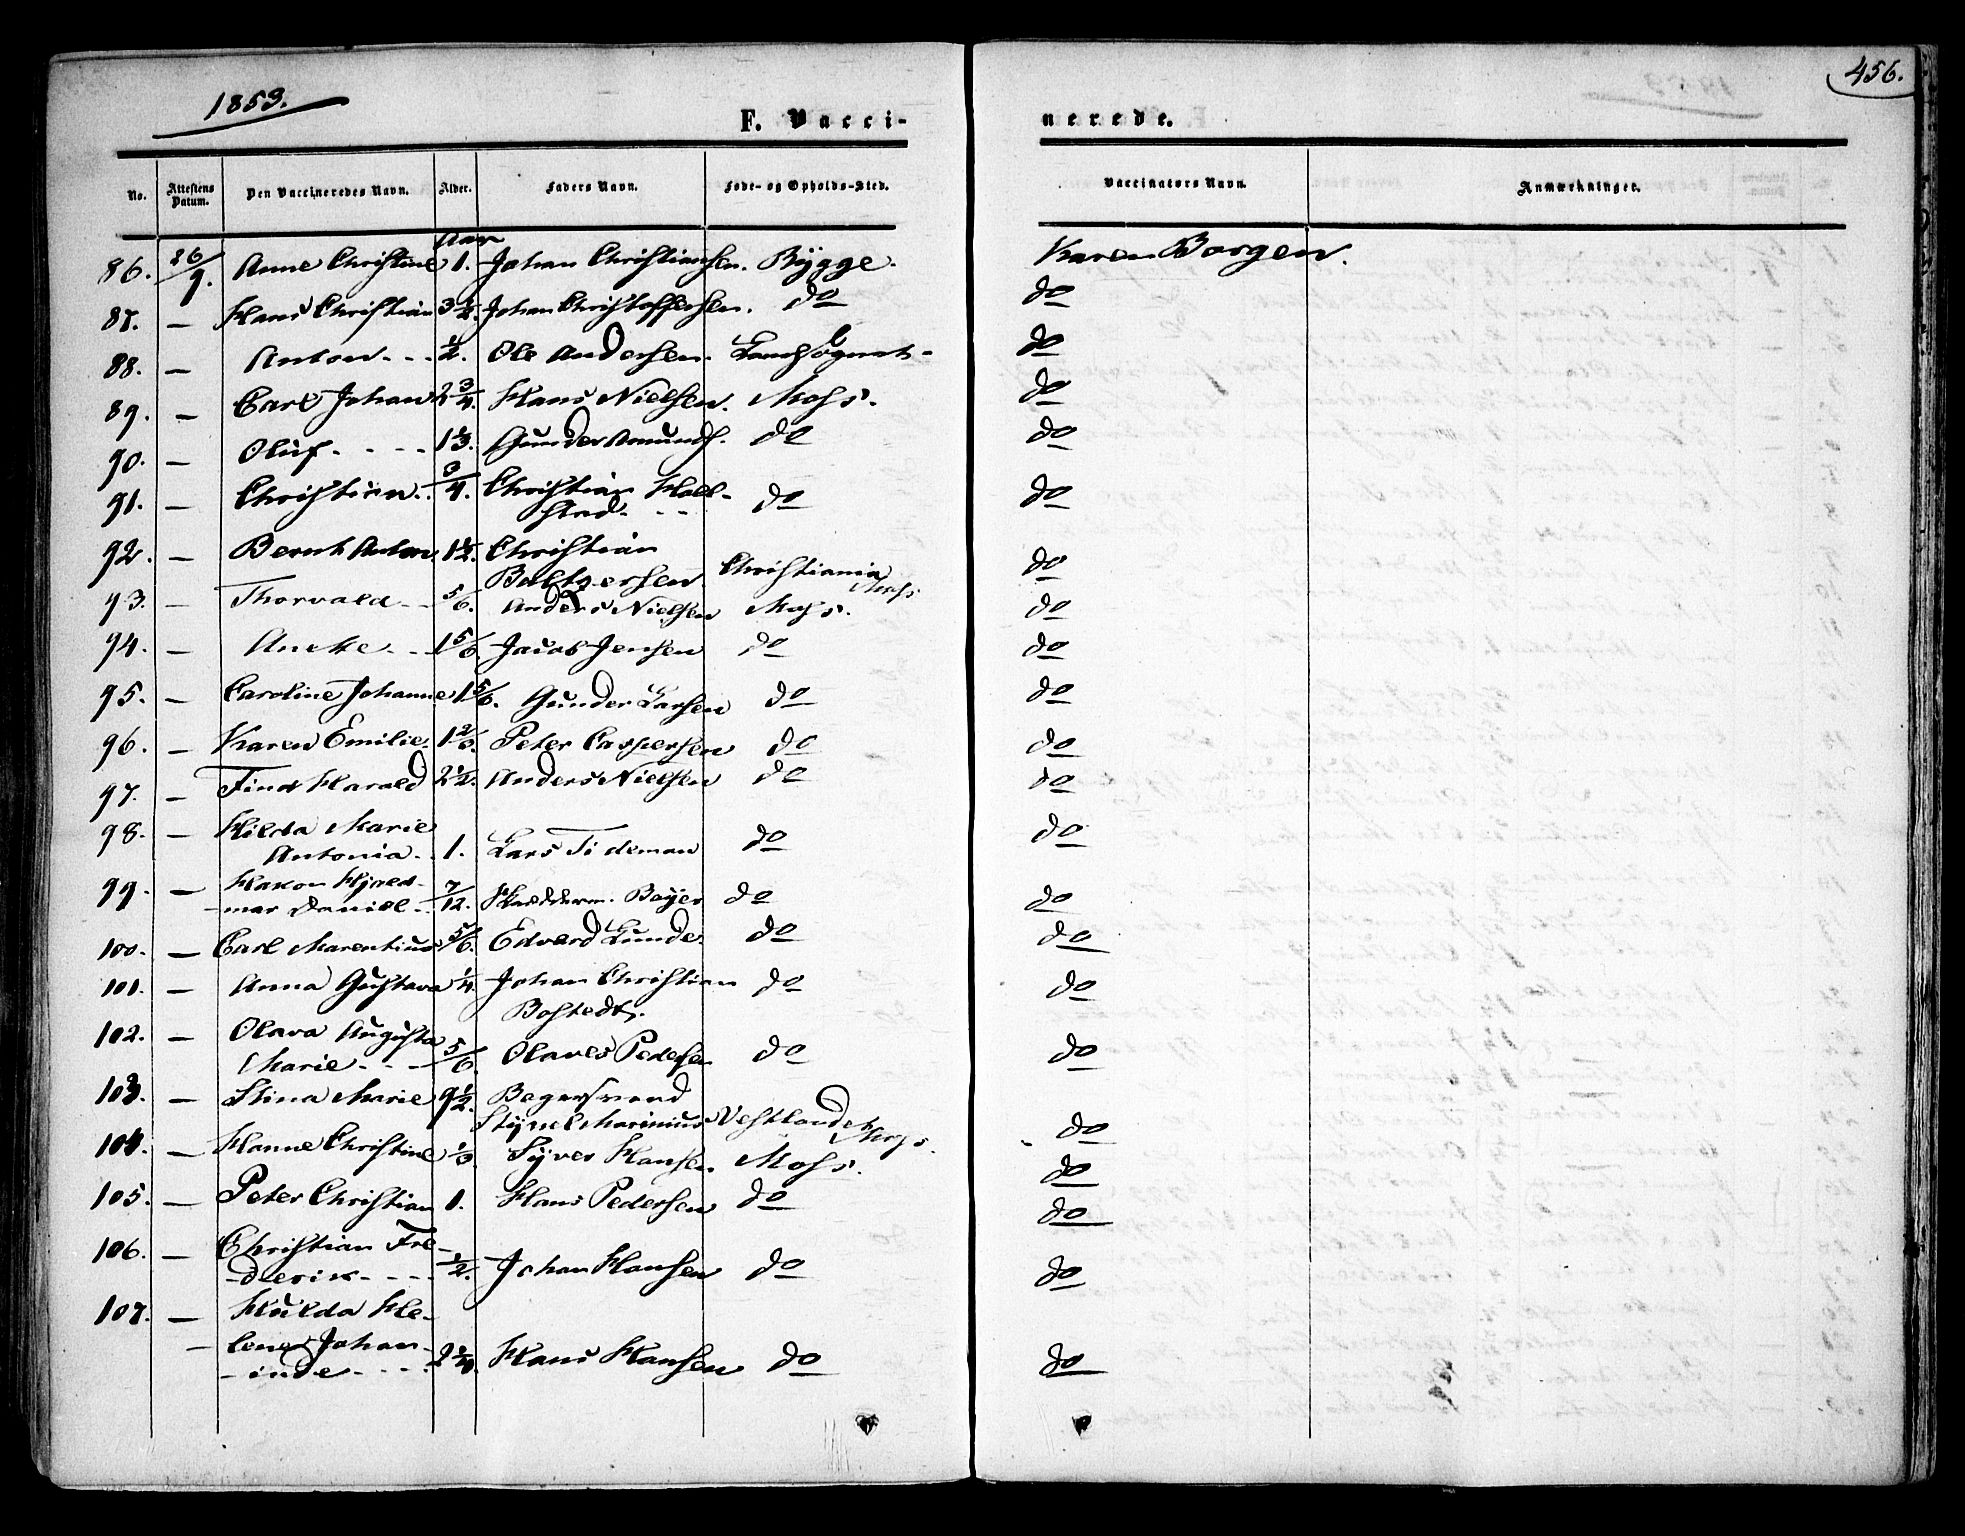 1853.
456.
F. Vaccinerede.
No. Attestens Datum. Den Vaccineredes Navn. Alder. Faders Navn. Føde- og Opholds-Sted. Vaccinators Navn. Anmærkninger.
Aar
86. 26/9. Anne Christine 1. Johan Christiansen. Rygge. Karen Borgen.
87. — Hans Christian 3 1/2. Johan Christoffersen. do do
88. — Anton - - - 1/2. Ole Andersen. Landsognet - do
89. — Carl Johan 2 3/4. Hans Nielsen. Moss. do
90. — Oluf. - - - - 1 1/3. Gunder Amunds. do do
91. — Christian - - 3/4. Christian Hall-
stad. - - do do
92. — Bernt Anton. 1 1/2. Christian
Baltzersen. Christiania Moss do
93. — Thorvald - - 5/6. Anders Nielsen Moss. do
94. — - - 1 5/6. Jacob Jensen do do
95. — Caroline Johanne 1 5/6. Gunder Larsen do do
96. — Karen Emilie. 1 2/3. Peter Caspersen do do
97. — Harald 2 1/2. Anders Nielsen do do
98. — Hilda Marie
Antonia. - 1. Lars Tideman do do
99. — Hakon Hjald-
- mar Daniel - 7/12. Beyer do do
100. — Carl Marentius 5/6. Edvard Lunde. do do
101. — Anna Gustava 1/4. Johan Christian
Bostedt. do do
102. — Olava Augusta
Marie - - - 5/6. Olaves Pedersen do do
103. — Stina Marie 9 1/2. Bagersvend
Marinius Vestlandet Moss. do
104. — Hanne Christine 1/3. Syver Hansen Moss. do
105. — Peter Christian 1. Hans Pedersen do do
106. — Christian Fre-
- derik - - - - 1/2. Johan Hansen do do
107. — Hulda He-
- lene Johan-
- inde - - - - 2 1/4. Hans Hansen do do